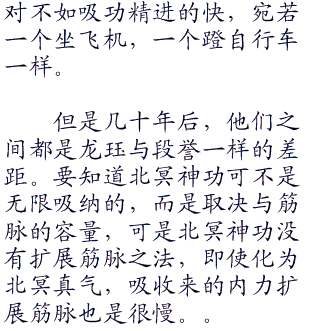 对不如吸功精进的快，宛若
一个坐飞机，一个蹬自行车
一样。
但是几十年后，他们之
间都是龙珏与段誉一样的差
距。要知道北冥神功可不是
无限吸纳的，而是取决与筋
脉的容量，可是北冥神功没
有扩展筋脉之法，即使化为
北冥真气，吸收来的内力扩
展筋脉也是很慢。。